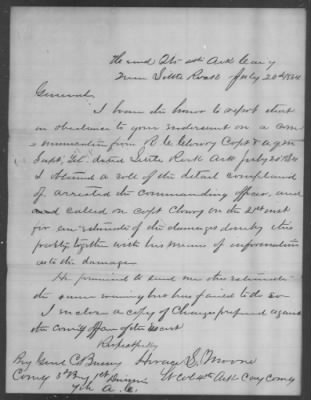 Head Qrs 4th Ark Cavy
Near Little Rock July 1864
General
I have the honor to report that
in obedience to your indorsement on a com
munication from R C Capt & aqm
dated Little Rock Ark July 20 1864
I obtained a roll of the detail complained
of arrested the commanding officer, and
and called on Capt on the 21st inst
for an estimate of the damages done by this
party together with his means of information
as to the damage
He promised to send me this estimate
the same evening but has failed to do so
I inclose a copy of Charges prepared against
the comdg officer of the escort
Respectfully
Brig Genl C Bussey Horace L Moore
Comdg 3d Brig 1st Division Lt Col 4th Ark Cav Comdg
7th A. C.